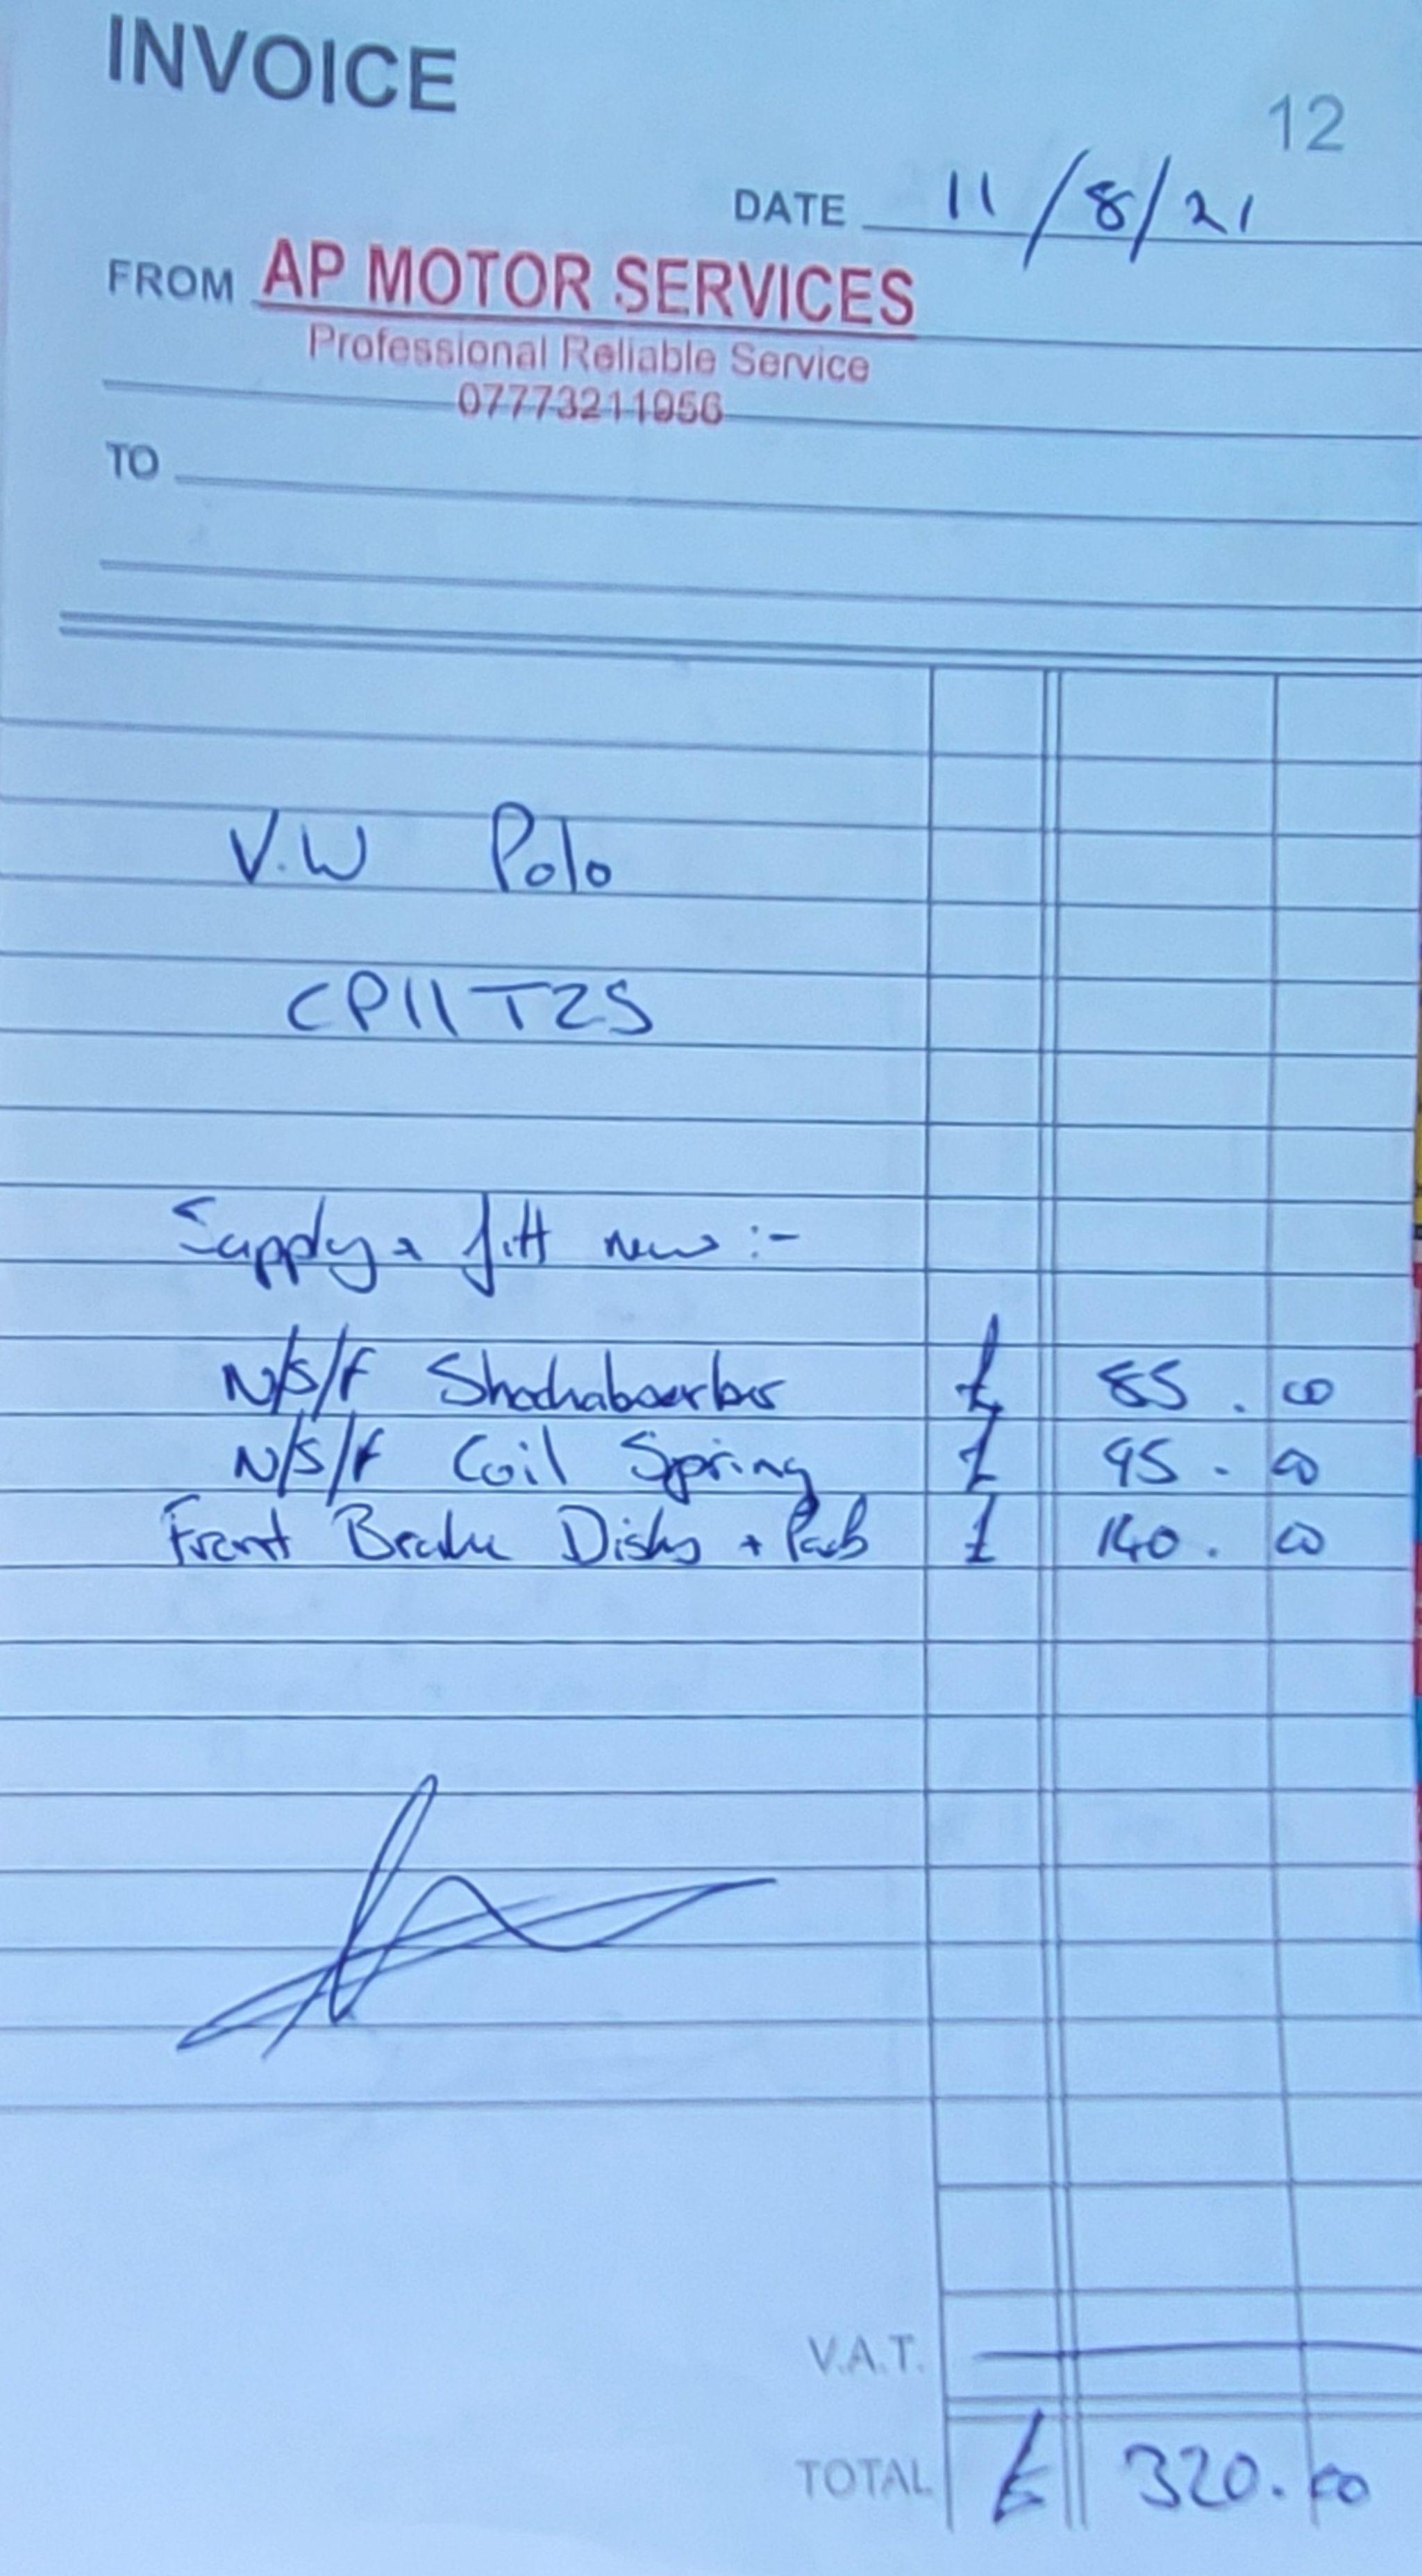 INVOICE
12
DATE 11/8/21
FROM AP MOTOR SERVICES
Professional Reliable Service
07773211056
TO
V.W Polo
CP11TZS
Supply & fitt new :-
N/S/F Shockabsorber £ 85.00
N/S/F Coil Spring £ 95.00
Front Brake Disks + Pads £ 140.00
V.A.T. —
TOTAL £ 320.00